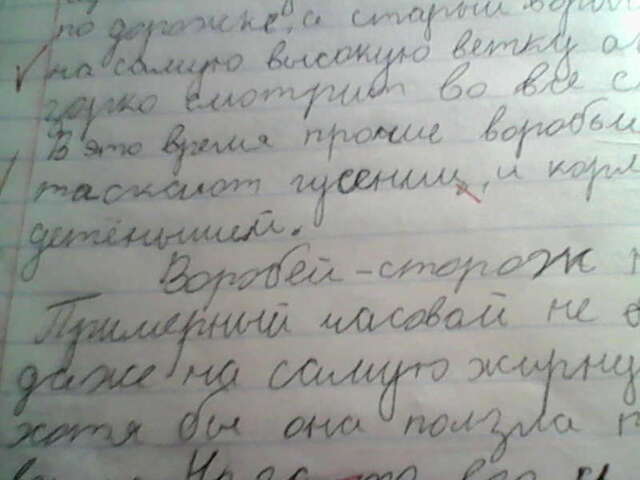 по дорожке, а старый
на самую высокую ветку
зорко смотрит во все с
В это время прочие воробьи
таскают гусениц, и корм
детёнышей.
Воробей-сторож
Примерный часовой не
даже на самую жирну
хотя бы она ползла